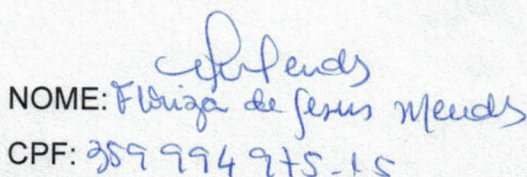 NOME: Floriza de Jesus Mendes
CPF: 359 994 975-15